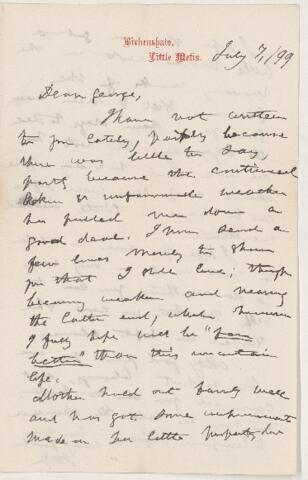 Birkenshaw,
Little Metis.
July 7, / 99
Dear George,
I have not written
to you lately, partly because
there was little to say,
partly because the continued
or unfavourable weather
has pulled me down a
good deal. I now send a
few lines merely to show
you that I still live; though
becoming weaker and nearing
the latter end, which however
I fully hope will be "far
better" than this uncertain
life.
Mother holds out fairly well
and has got some improvements
made on her little property here